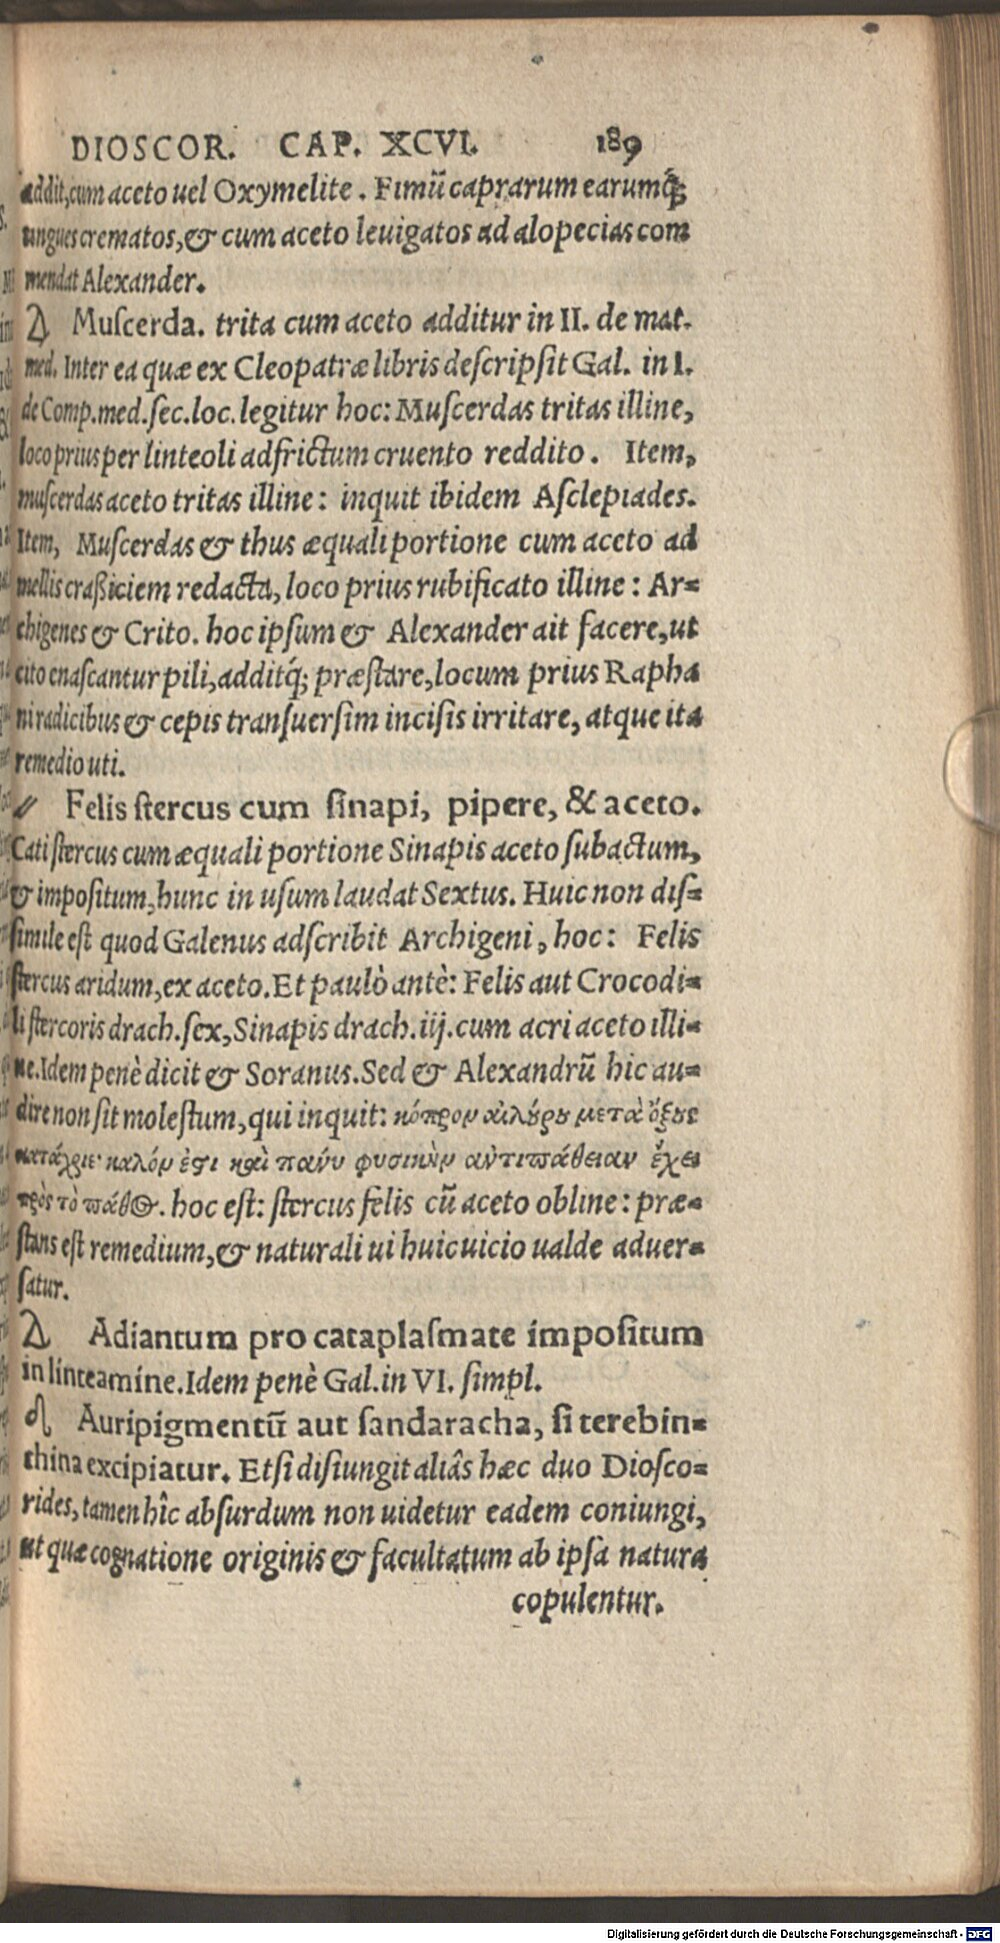 DIOSCOR. CAP. XCVI. 189
addit, cum aceto uel Oxymelite. Fimũ caprarum earumq́;
ungues crematos, & cum aceto leuigatos ad alopecias com
mendat Alexander.
Δ Muſcerda. trita cum aceto additur in II. de mat.
med. Inter ea quæ ex Cleopatræ libris deſcripſit Gal. in I.
de Comp. med. ſec. loc. legitur hoc: Muſcerdas tritas illine,
loco prius per linteoli adfrictum cruento reddito. Item,
muſcerdas aceto tritas illine: inquit ibidem Aſclepiades.
Item, Muſcerdas & thus æquali portione cum aceto ad
mellis craßiciem redacta, loco prius rubificato illine: Ar-
chigenes & Crito. hoc ipſum & Alexander ait facere, ut
cito enaſcantur pili, additq́; præſtare, locum prius Rapha
ni radicibus & cepis tranſuerſim inciſis irritare, atque ita
remedio uti.
Felis ſtercus cum ſinapi, pipere, & aceto.
Cati ſtercus cum æquali portione Sinapis aceto ſubactum,
& impoſitum, hunc in uſum laudat Sextus. Huic non diſ-
ſimile eſt quod Galenus adſcribit Archigeni, hoc: Felis
ſtercus aridum, ex aceto. Et paulò antè: Felis aut Crocodi-
li ſtercoris drach. ſex, Sinapis drach. iij. cum acri aceto illi-
ne. Idem penè dicit & Soranus. Sed & Alexandrũ hic au-
dire non ſit moleſtum, qui inquit: κόπρον αἰλούρου μετὰ ὄξους
κατάχριε· καλόν ἐστι καὶ πάνυ φυσικὴν ἀντιπάθειαν ἔχει
πρὸς τὸ πάθος. hoc eſt: ſtercus felis cũ aceto obline: præ-
ſtans eſt remedium, & naturali ui huic uicio ualde aduer-
ſatur.
Δ Adiantum pro cataplaſmate impoſitum
in linteamine. Idem penè Gal. in VI. ſimpl.
♌ Auripigmentũ aut ſandaracha, ſi terebin-
thina excipiatur. Etſi diſiungit aliâs hæc duo Dioſco-
rides, tamen hîc abſurdum non uidetur eadem coniungi,
ut quæ cognatione originis & facultatum ab ipſa natura
copulentur.
Digitalisierung gefördert durch die Deutsche Forschungsgemeinschaft - DFG